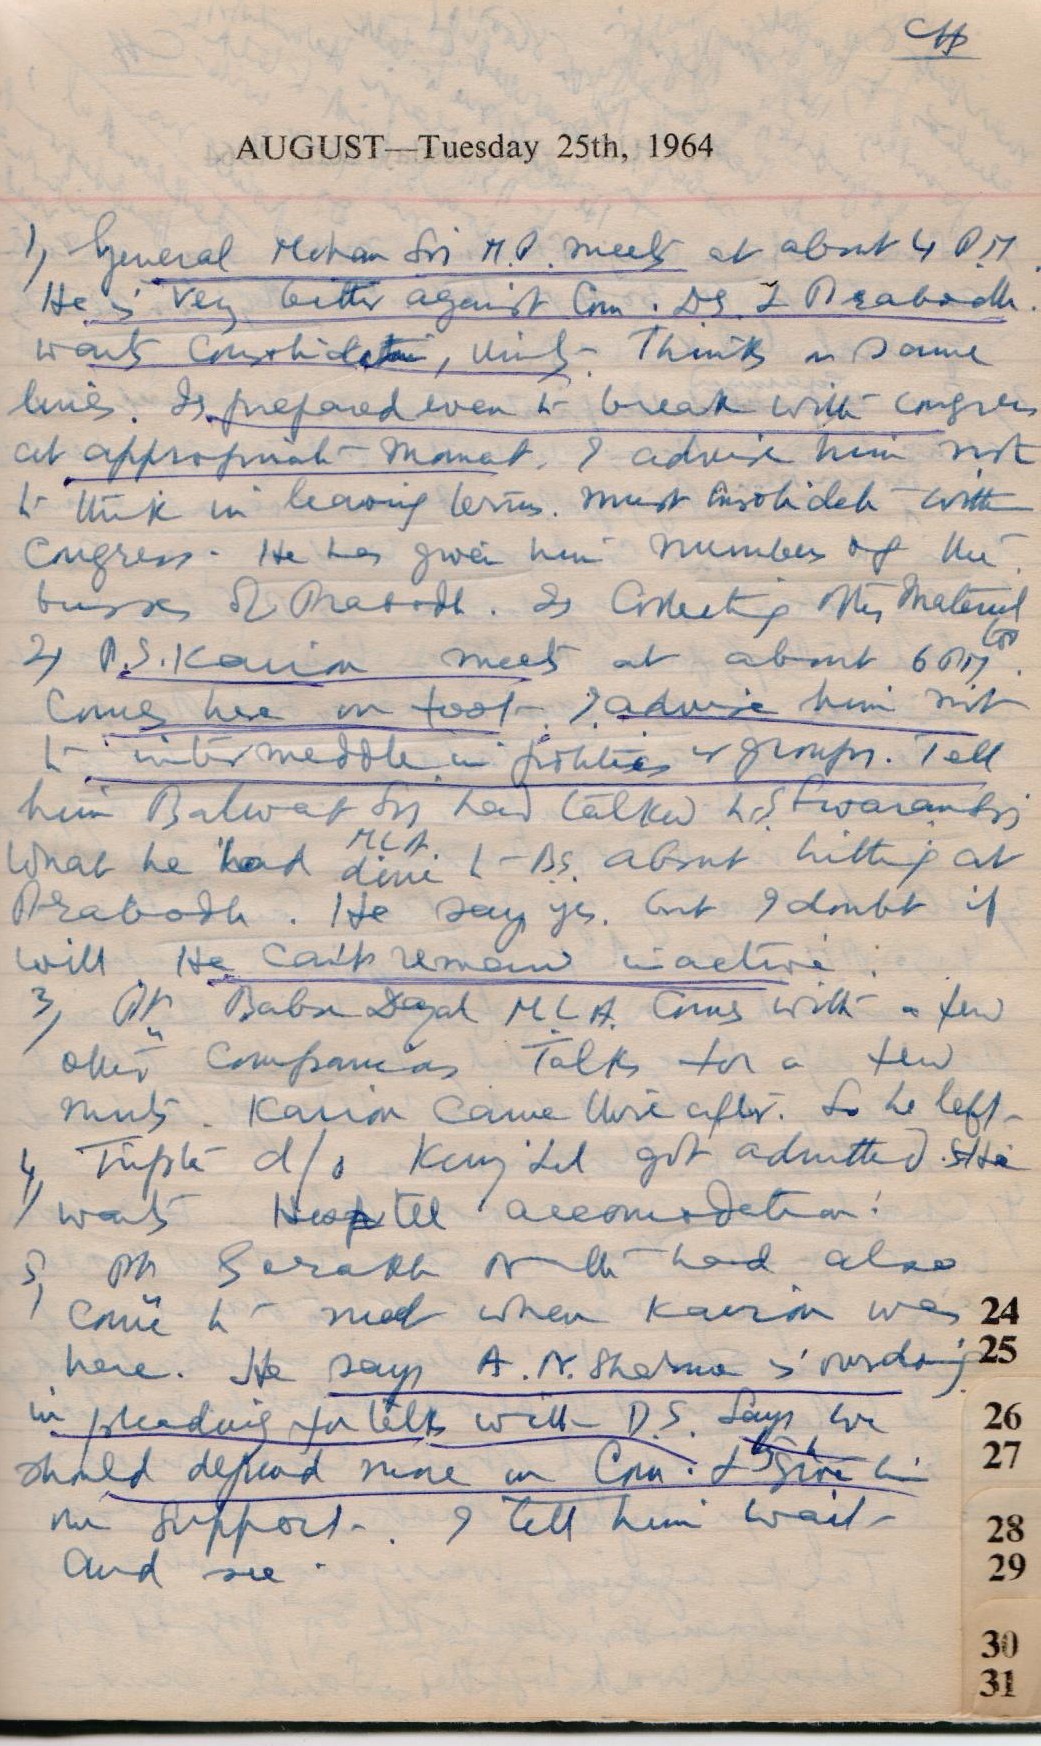 CH
AUGUST—Tuesday 25th, 1964
1, General Mohan Sin M.P. meets at about 4 P.M.
He is very bitter against Com. DS. & Prabodh.
wants Consolidation, Unity. Thinks on same
lines. Is prepared even to break with congress
at appropriate moment. I advise him not
to think in leaving terms. must consolidate with
Congress. He has given him numbers of the
busses of Prabodh. Is Collecting other Material
too
2, P.S. Kairon meets at about 6 PM.
Comes here on foot. I advise him not
to intermeddle in politics or groups. Tell
him Balwat Sin had talked to S Swaransin
M.L.A.
What he had done to DS. about hitting at
Prabodh. He says yes. but I doubt if
will. He can't remain inactive.
3, Pt Babu Dayal M.L.A. Comes with a few
other Companions Talks for a few
mnts. Kairon came thereafter. So he left
4, Tripta d/o got admitted. She
wants Hospitll accomodation.
5, Pt Nath had also
come to meet when Kairon was
here. He says A.N. Sharma is
in pleading for talks with D.S. Says we
should depend more on Com. & give him
our Support. I tell him wait
and see.
24
25
26
27
28
29
30
31